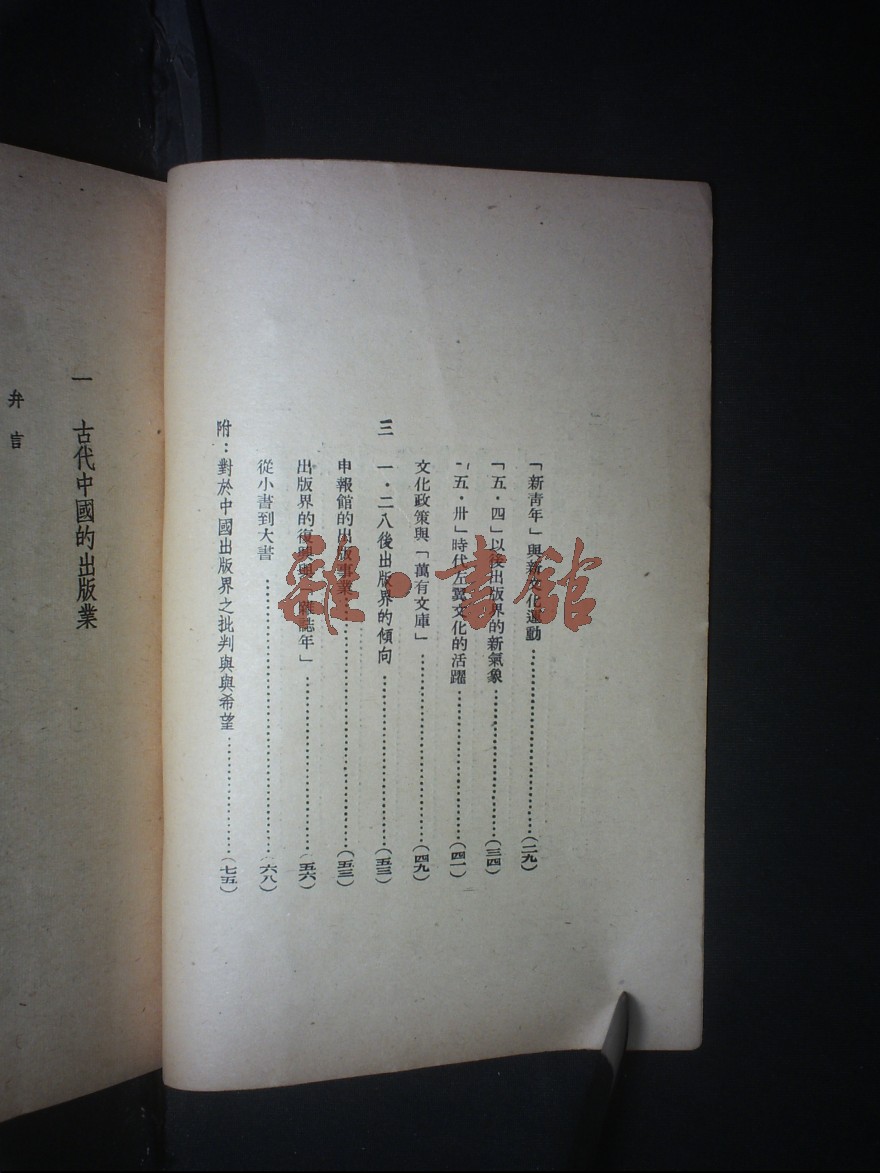 「新青年」與新文化運動……(二九)
「五·四」以後出版界的新氣象……(三四)
「五·卅」時代左翼文化的活躍……(四一)
文化政策與「萬有文庫」……(四九)
三 一·二八後出版界的傾向……(五三)
申報館的出版事業……(五三)
出版界的復興與「雜誌年」……(五六)
從小書到大書……(六八)
附：對於中國出版界之批判與與希望……(七五)
一 古代中國的出版業
弁言
雜·書館